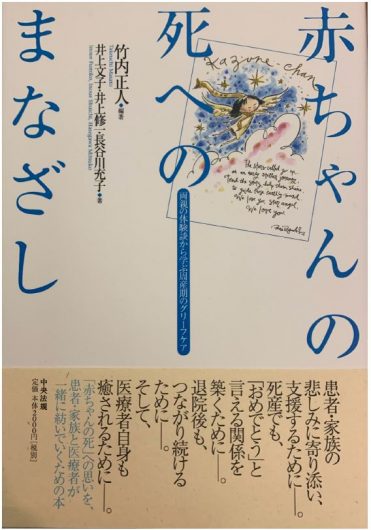 赤ちゃんの
死への
まなざし
竹内正人●編著
Takeuchi Masato
井上文子・井上修一・長谷川充子●著
Inoue Fumiko, Inoue Shuichi, Hasegawa Mitsuko
両親の体験談から学ぶ周産期のグリーフケア
Kazune Chan
The stars called you up
on an early angel journey.
We love you, star angel,
We love you!
患者・家族の
悲しみに寄り添い、
支援するために──。
死産でも、
「おめでとう」と
言える関係を
築くために──。
退院後も、
つながり続ける
ために──。
そして、
医療者自身も
癒されるために──。
「赤ちゃんの死」への思いを、
患者・家族と医療者が
一緒に紡いでいくための本
中央法規
定価 本体2000円[税別]